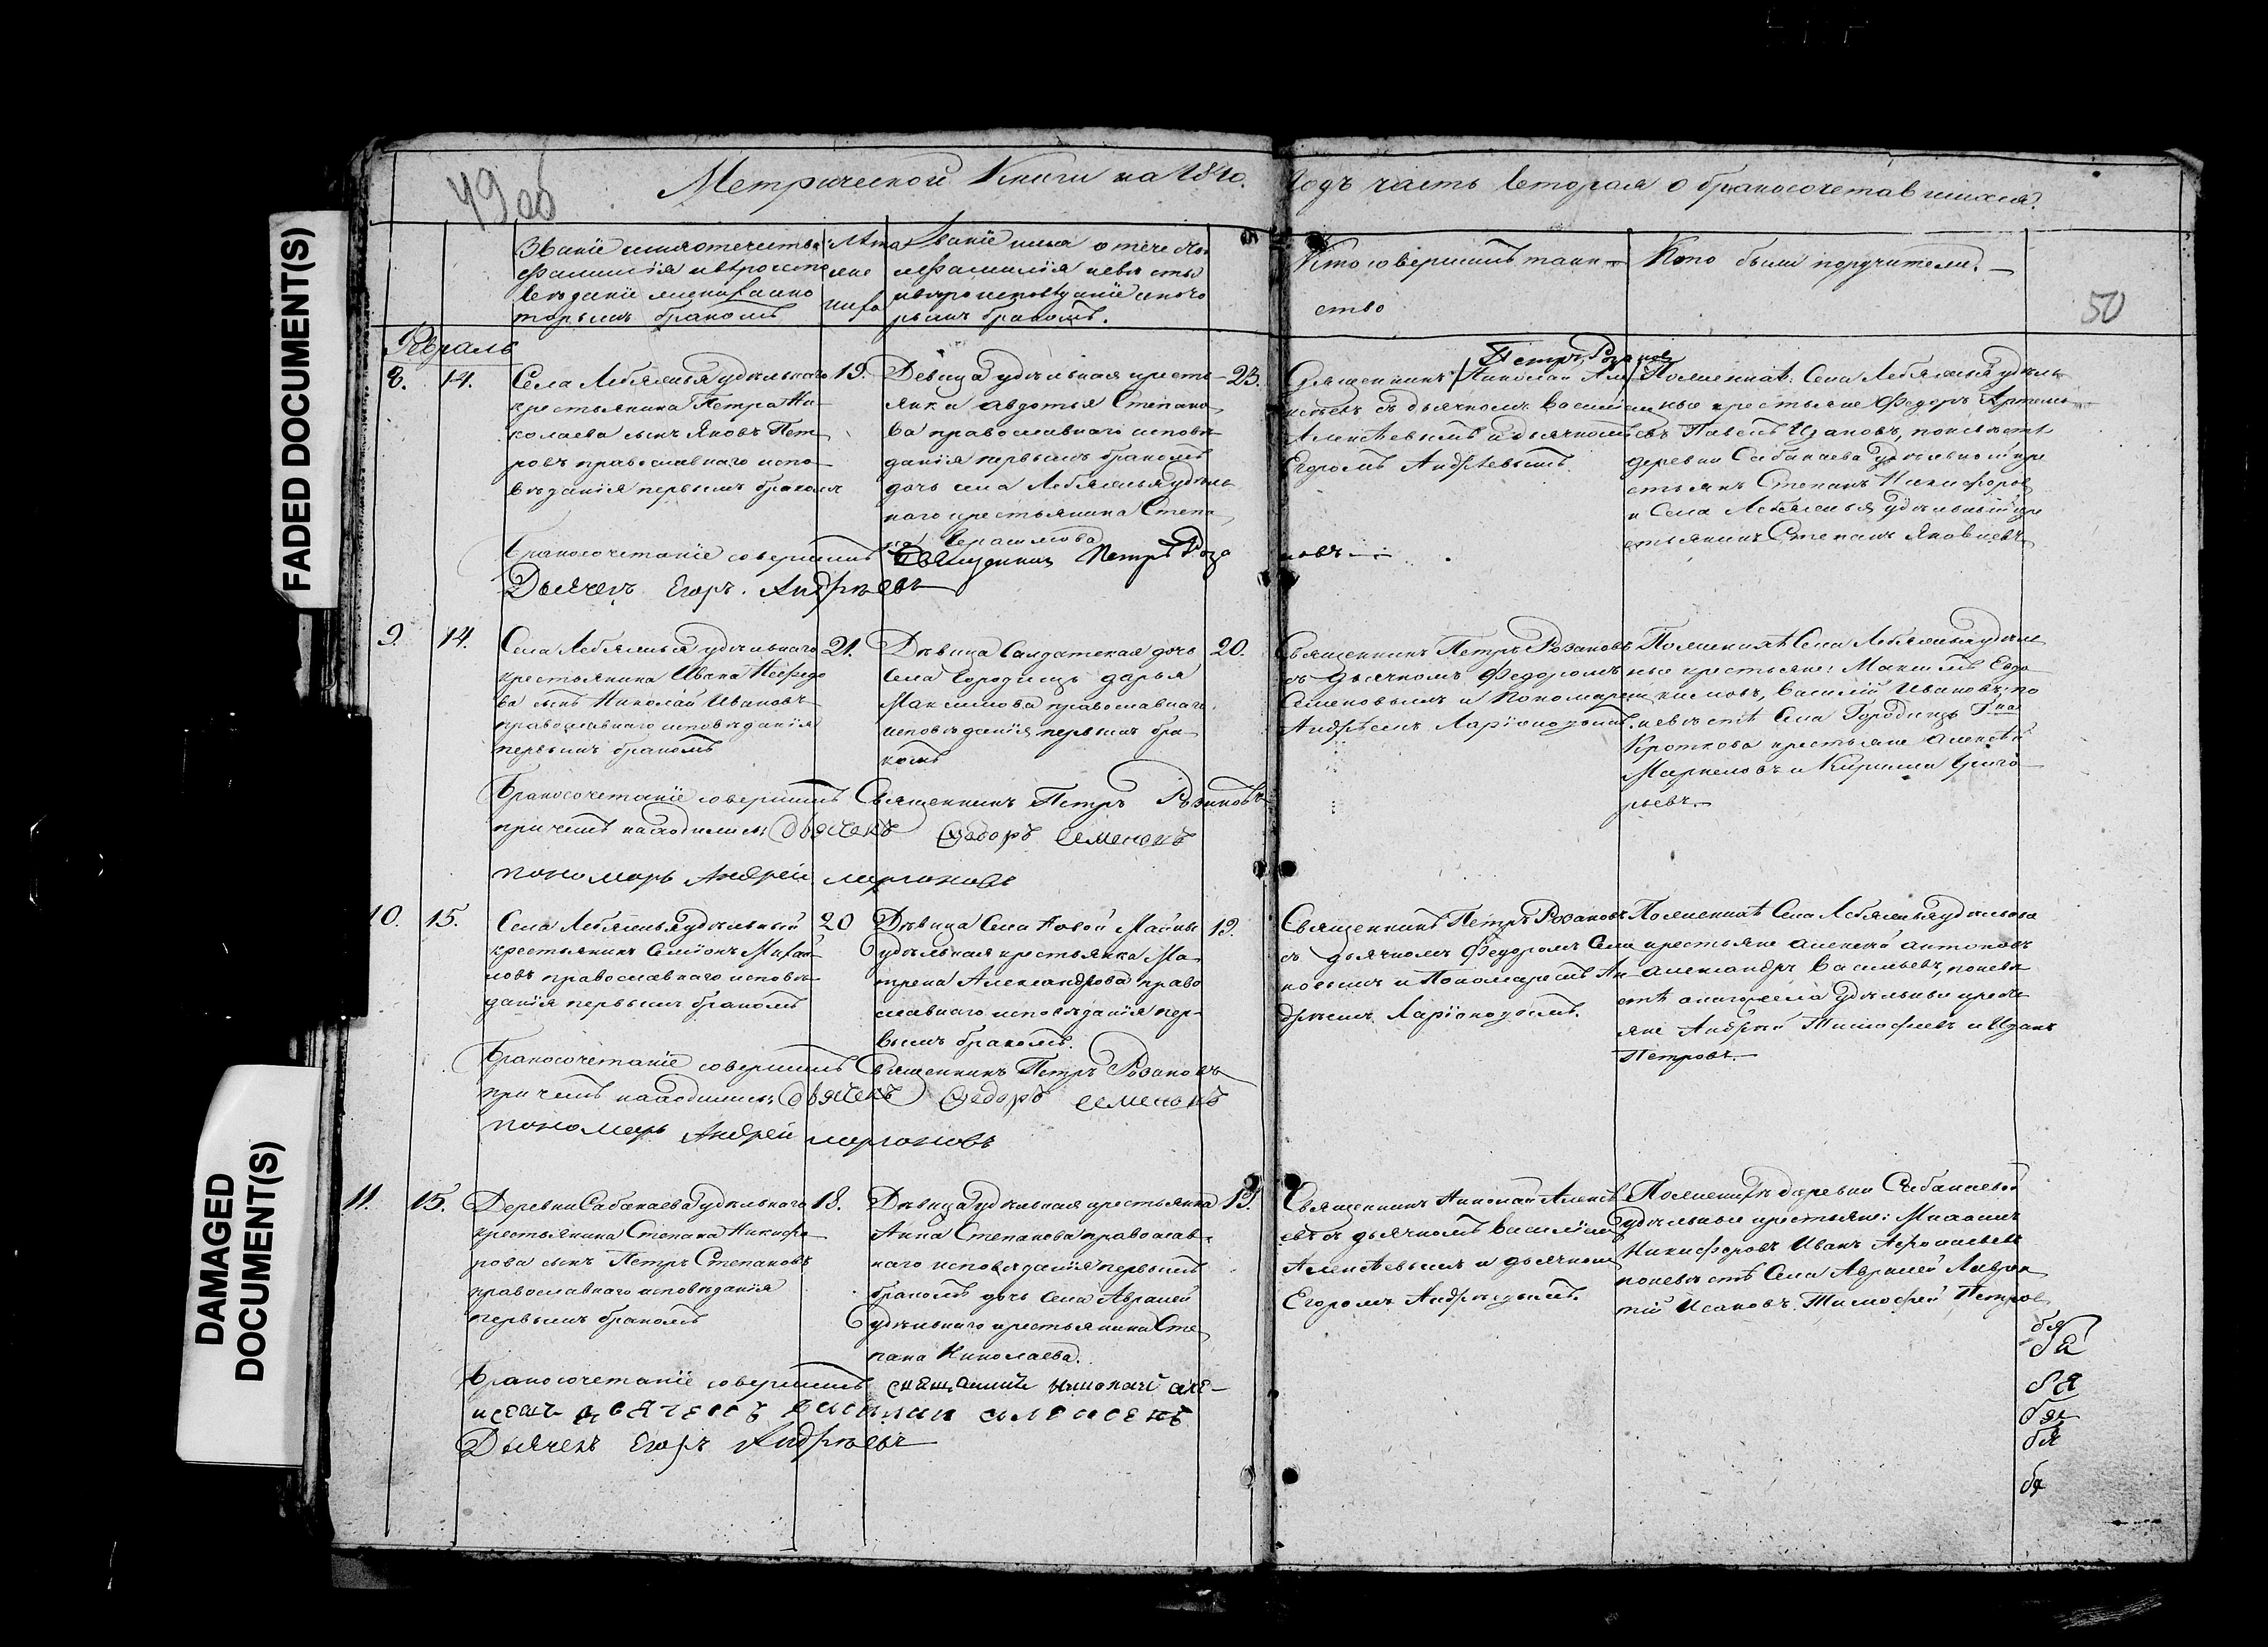 FADED DOCUMENT(S)
DAMAGED
DOCUMENT(S)
49 об
Метрической Книги на 1840.
Годъ часть вторая о бракосочетавшихся.
50
Званіе имя отечество
фамилія и вѣроиспо
веданіе жениха и ко
торымъ бракомъ
Лѣта
Званіе имя отечество
и фамилія невѣсты
и вѣроисповѣданіе и кото
рымъ бракомъ.
Кто совершилъ таин-
ство
Кто были поручители.
Февраль
8.
14.
Села Лебяжья удѣльнаго
крестьянина Петра Ни-
колаева сынъ Яковъ Пет-
ровъ православнаго испо-
вѣданія первымъ бракомъ
19.
Девица удѣльная кресть-
янка Авдотья Степано-
ва православнаго исповѣ-
данія первымъ бракомъ
дочь села Лебяжья удѣль-
наго крестьянина Степа-
на Герасимова
23.
Петръ Розановъ
Священникъ Николай Але
ксѣевъ съ дьячкомъ Василіемъ
Алексѣевымъ и дьячкомъ
Егоромъ Андрѣевымъ.
По женихѣ: Села Лебяжья удѣль-
ные крестьяне Федоръ Артемь-
евъ Павелъ Ивановъ, по невѣстѣ
деревни Сабакаева удѣльной кре
стьянъ Степанъ Никифоровъ
и Села Лебяжья удѣльный кре
стьянинъ Степанъ Яковлевъ
Бракосочетаніе совершилъ Священникъ Петръ Роза
новъ
Дьячекъ Егоръ Андрѣевъ
9.
14.
Села Лебяжья удѣльнаго
крестьянина Ивана Нефедо
ва сынъ Николай Ивановъ
православнаго исповѣданія
первымъ бракомъ
21.
Дѣвица Салдатская дочь
села Городищъ Дарья
Максимова православнаго
исповѣданія первымъ бра
комъ
20.
Священникъ Петръ Розановъ
съ дьячкомъ Федоромъ
Семеновымъ и Пономаремъ
Андрѣемъ Ларіоновымъ.
По женихѣ Села Лебяжья удѣль
ные крестьяне: Максимъ Евдо
кимовъ, Василій Ивановъ; по
невѣстѣ Села Городищъ Г.на
Кроткова крестьяне Алексѣй
Маркеловъ и Кирилла Григо
рьевъ.
Бракосочетаніе совершилъ Священникъ Петръ Розановъ
при чемъ находились: дьячекъ Федоръ Семеновъ
пономарь Андрей Ларионовъ
10.
15.
Села Лебяжья удѣльный
крестьянинъ Семіонъ Михай
ловъ православнаго исповѣ
данія первымъ бракомъ
20
Дѣвица Села Новой Майны
удѣльная крестьянка Ма
трена Александрова право
славнаго исповѣданія пер-
вымъ бракомъ.
19.
Священникъ Петръ Розановъ
съ дьячкомъ Федоромъ Семе
новымъ и Пономаремъ Ан
дрѣемъ Ларіоновымъ.
По женихѣ Села Лебяжья удѣльнаго
крестьяне Алексѣй Антоновъ
Александръ Васильевъ, по невѣ
стѣ онаго села удѣльные кресть
яне Андрѣй Тимофѣевъ и Иванъ
Петровъ.
Бракосочетаніе совершилъ Священникъ Петръ Розановъ
при чемъ находились: дьячекъ Федоръ Семеновъ
пономарь Андрей Ларионовъ
11.
15.
Деревни Сабакаева удѣльнаго
крестьянина Степана Никифо
рова сынъ Петръ Степановъ
православнаго исповѣданія
первымъ бракомъ
18.
Дѣвица удѣльная крестьянка
Анна Степанова православ-
наго исповѣданія первымъ
бракомъ дочь Села Авралей
удѣльнаго крестьянина Сте
пана Николаева.
19.
Священникъ Николай Алексѣ
евъ съ дьячкомъ Василіемъ
Алексѣевымъ и дьячкомъ
Егоромъ Андрѣевымъ.
По женихѣ деревни Сабакаевой
удѣльные крестьяне: Михаилъ
Никифоровъ Иванъ Афонасьевъ
по невѣстѣ Села Авралей Лаврен
тій Исаковъ Тимофей Петровъ
Бракосочетаніе совершилъ священникъ Николай Але-
ксеевъ дьячекъ Василий Алексеевъ
Дьячекъ Егоръ Андрѣевъ